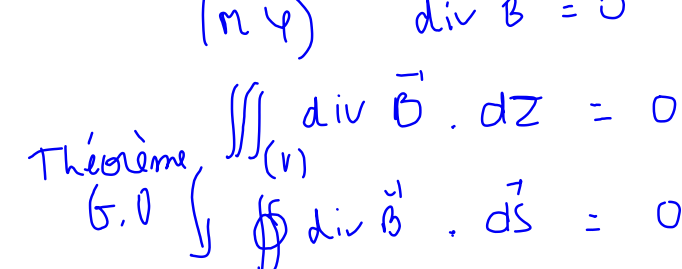 (M φ) div B = 0
∭(V) div B⃗ . dτ = 0
Théorème
G.O ∯ div B⃗ . dS⃗ = 0